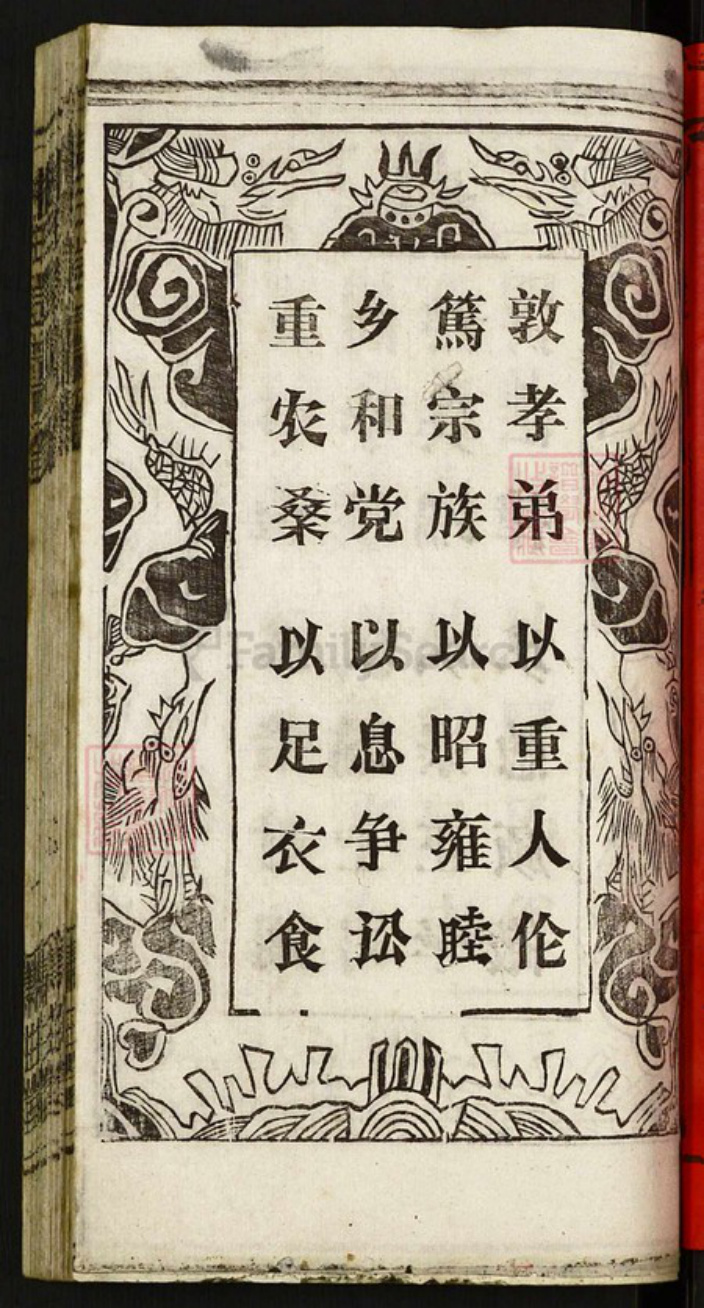 敦孝弟 以重人伦
篤宗族 以昭雍睦
乡和党 以息争讼
重农桑 以足衣食
FamilySearch